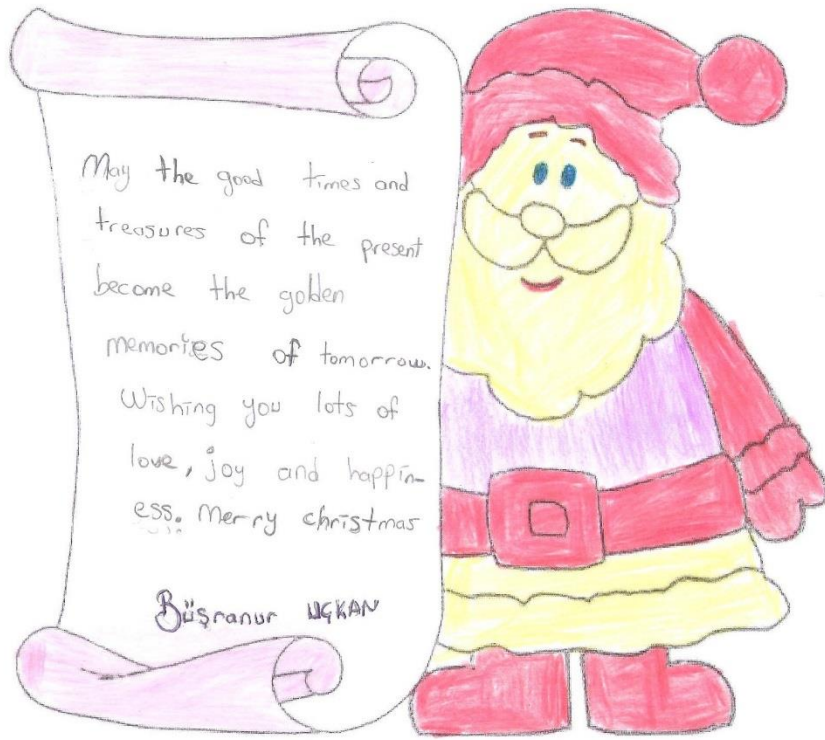 May the good times and
treasures of the present
become the golden
memories of tomorrow.
Wishing you lots of
love, joy and happin-
ess. Merry christmas
Büşranur UÇKAN